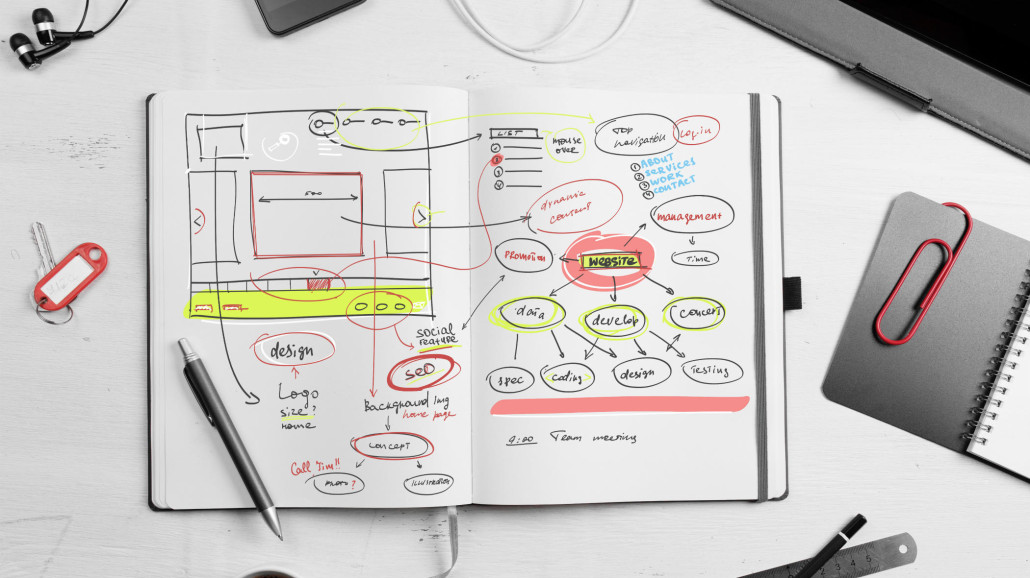 500
design
Logo
size?
Home
social
feature
seo
Background Img
home page
concept
Call Tim!!
PHOTO ?
ILLUSTRATION
LIST
mouse
over
TOP
navigation
Login
1 ABOUT
2 SERVICES
3 WORK
4 CONTACT
dynamic
content
management
Time
PROMOTION
WEBSITE
data
develop
concept
spec
coding
design
Testing
9:00 Team meeting
2 3 4 5